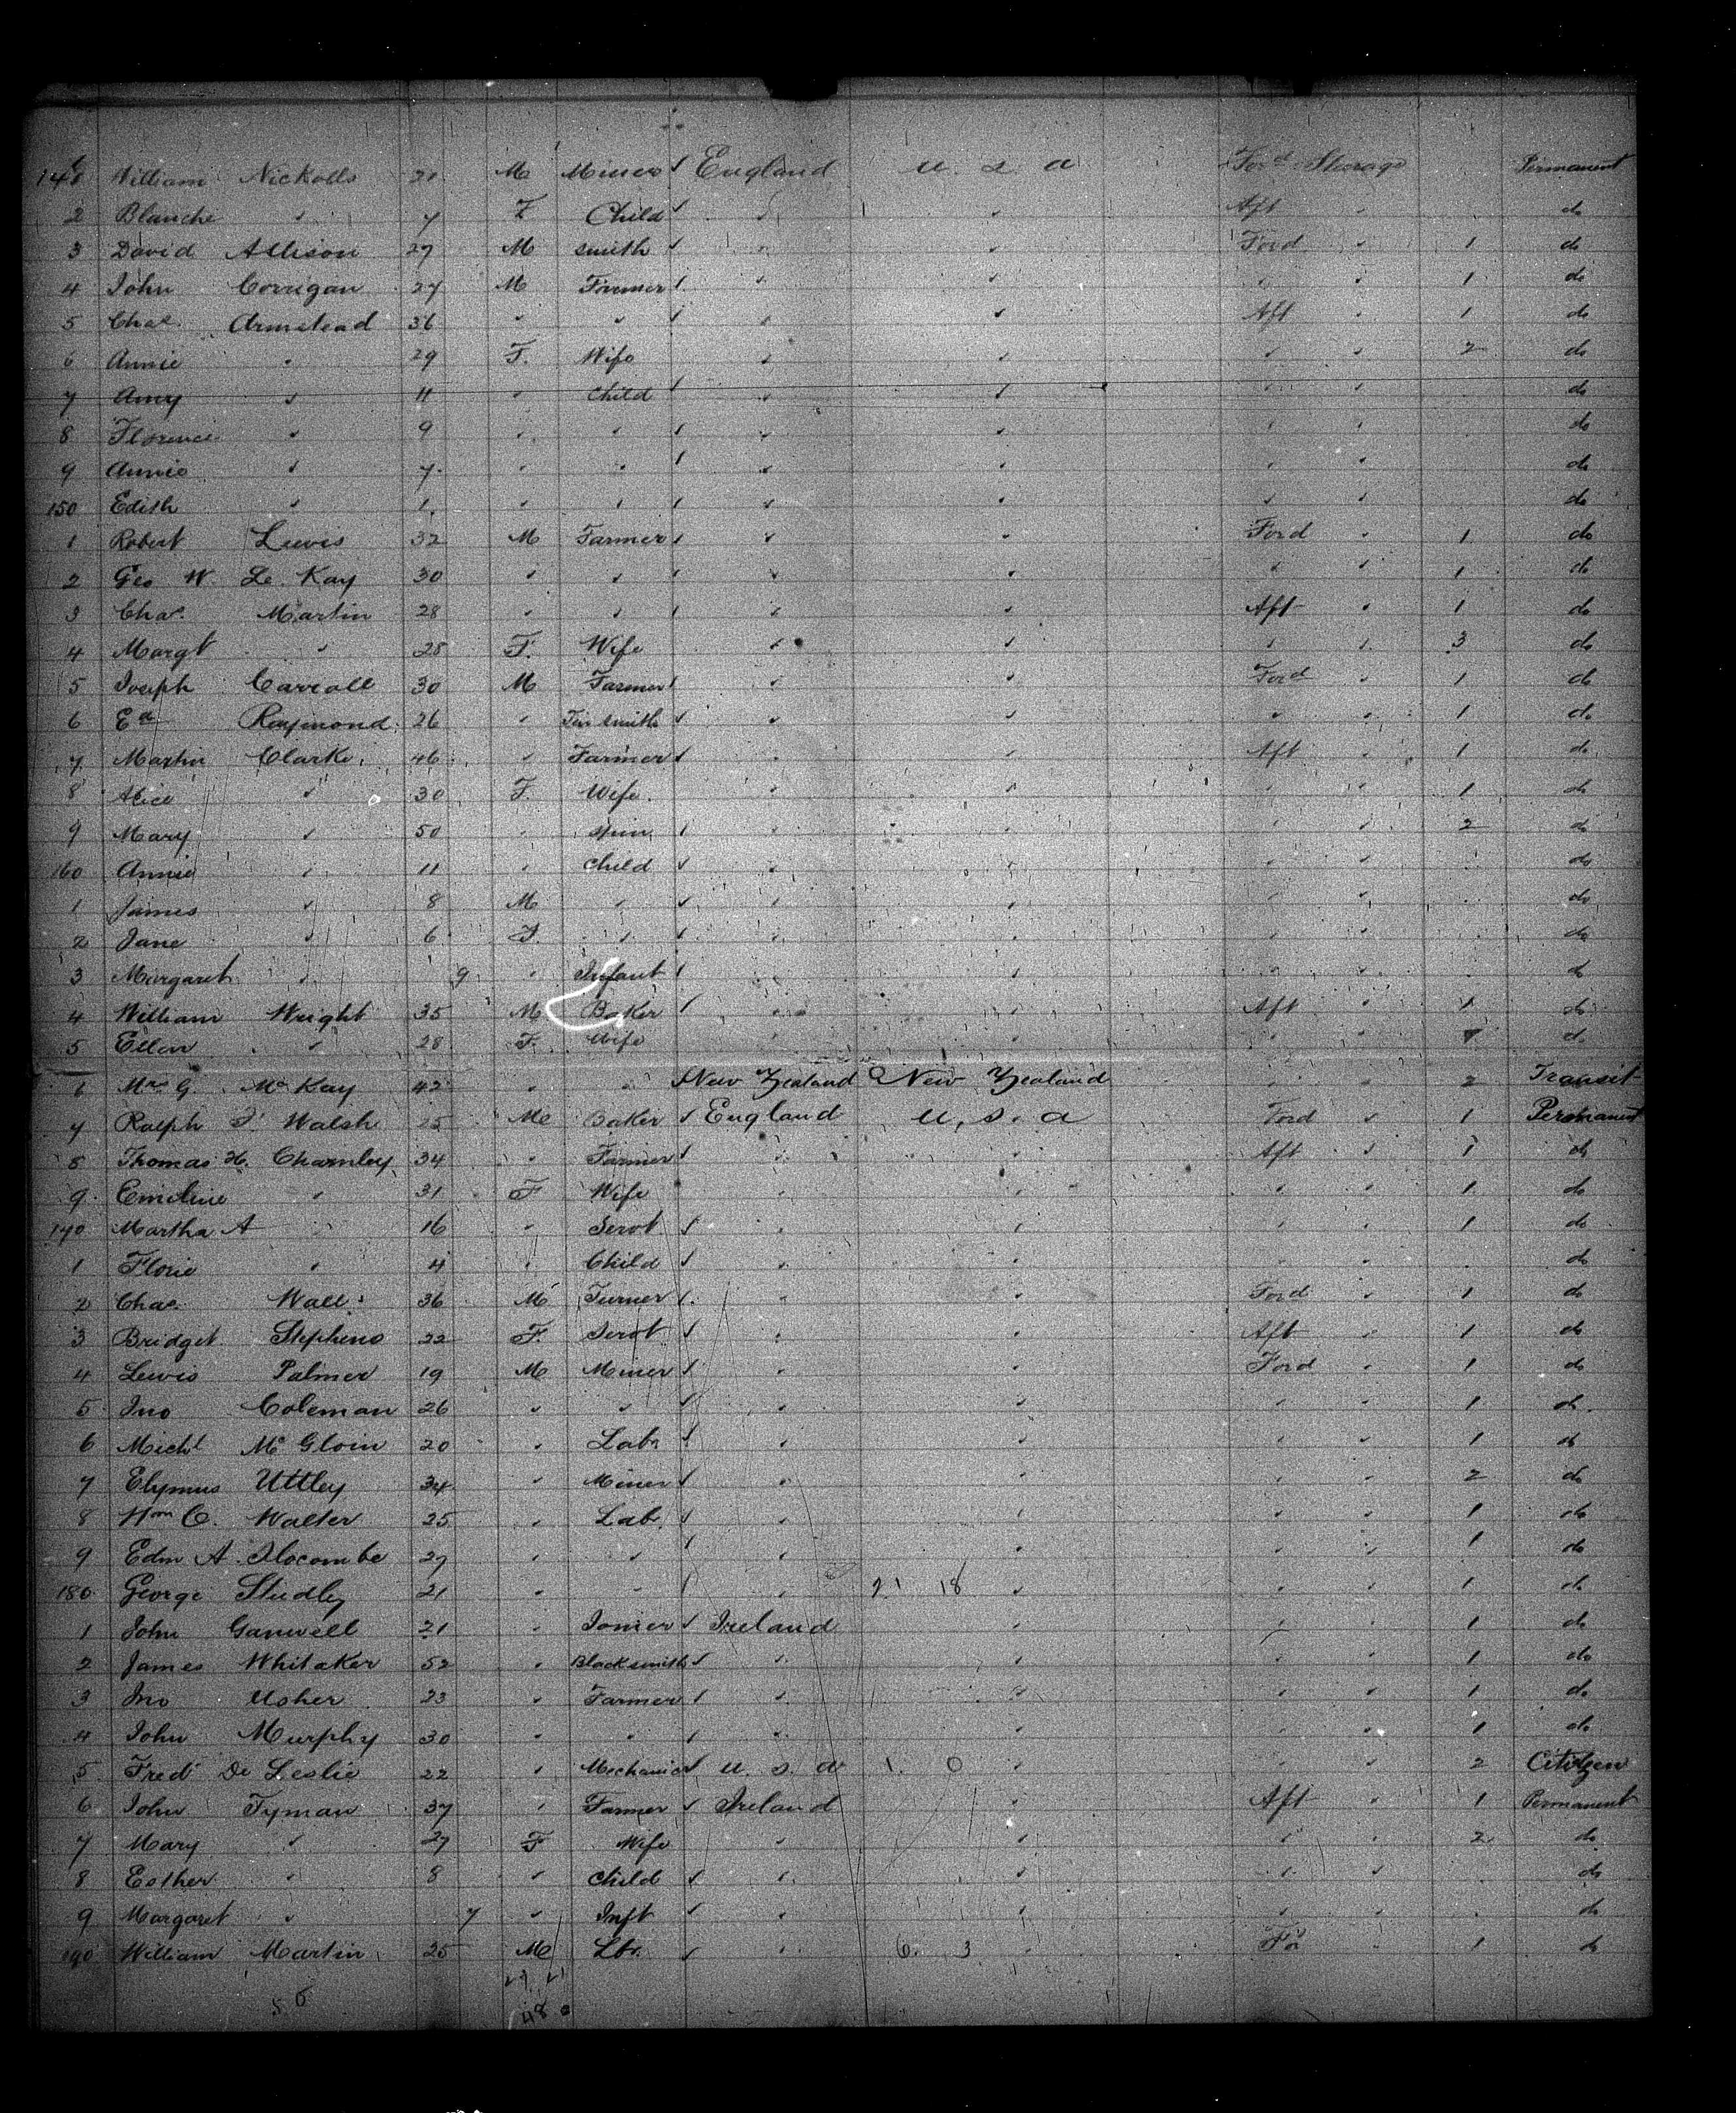 141 William Nickolls 21 M Miner ✓ England U S A Ford Steerage Permanent
2 Blanche " 7 F Child ✓ " " Aft " do
3 David Allison 27 M Smith ✓ " " Ford " 1 do
4 John Corrigan 27 M Farmer ✓ " " " " 1 do
5 Chas. Armstead 36 " " ✓ " " Aft " 1 do
6 Annie " 29 F. Wife " " " " 2 do
7 Amy " 11 " Child ✓ " " " " do
8 Florence " 9 " " ✓ " " " " do
9 Annie " 7 " " ✓ " " " " do
150 Edith " 1 " " ✓ " " " " do
1 Robert Lewis 32 M Farmer ✓ " " Ford " 1 do
2 Geo W. Le Kay 30 " " ✓ " " " " 1 do
3 Chas. Martin 28 " " ✓ " " Aft " 1 do
4 Margt " 28 F. Wife " " " " 3 do
5 Joseph Carroll 30 M Farmer ✓ " " Ford " 1 do
6 Ed Raymond 26 " Tin smith ✓ " " " " 1 do
7 Martin Clarke 46 " Farmer ✓ " " Aft " 1 do
8 Alice " 30 F. Wife " " " " 1 do
9 Mary " 50 " Spin ✓ " " " " 2 do
160 Annie " 11 " Child ✓ " " " " do
1 James " 8 M " ✓ " " " " do
2 Jane " 6 F. " ✓ " " " " do
3 Margaret " 9 " Infant ✓ " " " " do
4 William Wright 35 M Baker ✓ " " Aft " 1 do
5 Ellen " 28 F. Wife " " " do
6 Mrs G McKay 42 " " New Zealand New Zealand " " 2 Transit
7 Ralph Walsh 25 M Baker ✓ England U. S. A Ford " 1 Permanent
8 Thomas H. Charnley 34 " Farmer ✓ " " Aft " 1 do
9 Emeline " 31 F Wife " " " " 1 do
170 Martha A " 16 " Servt ✓ " " " " 1 do
1 Florie " 4 " Child ✓ " " " " do
2 Chas. Wall 36 M Turner ✓ " " Ford " 1 do
3 Bridget Stephens 22 F. Servt ✓ " " Aft " 1 do
4 Lewis Palmer 19 M Miner ✓ " " Ford " 1 do
5 Jno Coleman 26 " " ✓ " " " " 1 do
6 Michl McGloin 20 " Labr ✓ " " " " 1 do
7 Elymus Uttley 34 " Miner ✓ " " " " 2 do
8 Wm C. Walter 25 " Lab. ✓ " " " " 1 do
9 Edm A. Slocombe 27 " " ✓ " " " " 1 do
180 George Studley 21 " " ✓ " 21 18 " " " 1 do
1 John Ganwell 21 " Joiner ✓ Ireland " " " 1 do
2 James Whitaker 52 " Blacksmith ✓ " " " " 1 do
3 Jno Usher 23 " Farmer ✓ " " " " 1 do
4 John Murphy 30 " " ✓ " " " " 1 do
5 Fred De Leslie 22 " Mechanic ✓ U. S. A 1. 0 " " " 2 Citizen
6 John Tyman 37 " Farmer ✓ Ireland " Aft " 1 Permanent
7 Mary " 27 F Wife " " " " 2 do
8 Esther " 8 " Child ✓ " " " " do
9 Margaret " 7 " Inft ✓ " " " " do
190 William Martin 25 M Lbr. ✓ " 6. 3 " For " 1 do
56
48